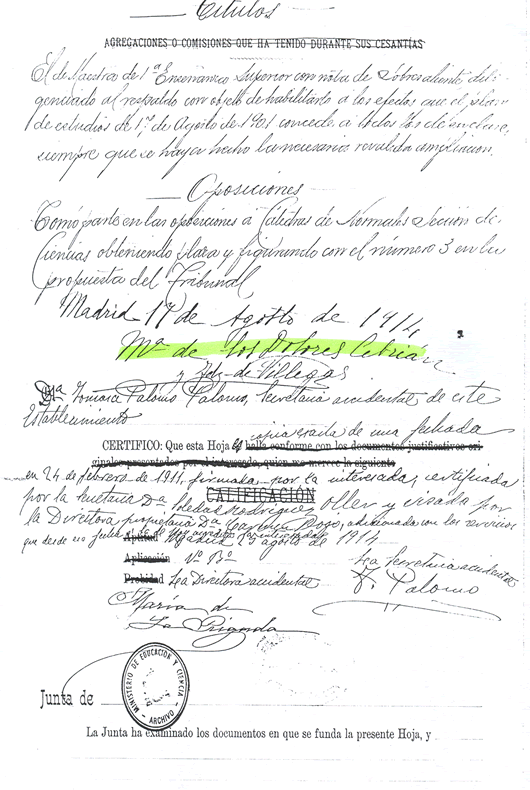 Títulos
AGREGACIONES O COMISIONES QUE HA TENIDO DURANTE SUS CESANTÍAS
El de Maestra de 1ª Enseñanza Superior con nota de Sobresaliente dili-
genciado al respaldo con objeto de habilitarlo a los efectos que el plan
de estudios de 17 de Agosto de 1901 concede a todos los de en clase,
siempre que se haya hecho la necesaria revalida ampliación.
Oposiciones
Tomó parte en las oposiciones a Cátedras de Normales Sección de
Ciencias obteniendo plaza y figurando con el número 3 en la
propuesta del Tribunal
Madrid 17 de Agosto de 1914
Mª de los Dolores Cebrián
y Fdez. de Villegas
Dª Tomasa Palomo Palomo, Secretaria accidental de este
Establecimiento
CERTIFICO: Que esta Hoja es copia exacta de una fechada
halla conforme con los documentos justificativos ori-
ginales presentados por el interesado, quien me merece la siguiente
en 24 de febrero de 1911, firmada por la interesada, certificada
CALIFICACIÓN
por la Secretaria Dª Soledad Rodríguez Oller y visada por
la Directora propietaria Dª Carmen Rojo, adicionada con los servicios
que desde
Aptitud
Madrid 29 agosto de 1914
Aplicación Vº Bº La Secretaria accidental
Probidad La Directora accidental T. Palomo
María de
La Rigada
Junta de
MINISTERIO DE EDUCACIÓN Y CIENCIA - ARCHIVO
La Junta ha examinado los documentos en que se funda la presente Hoja, y